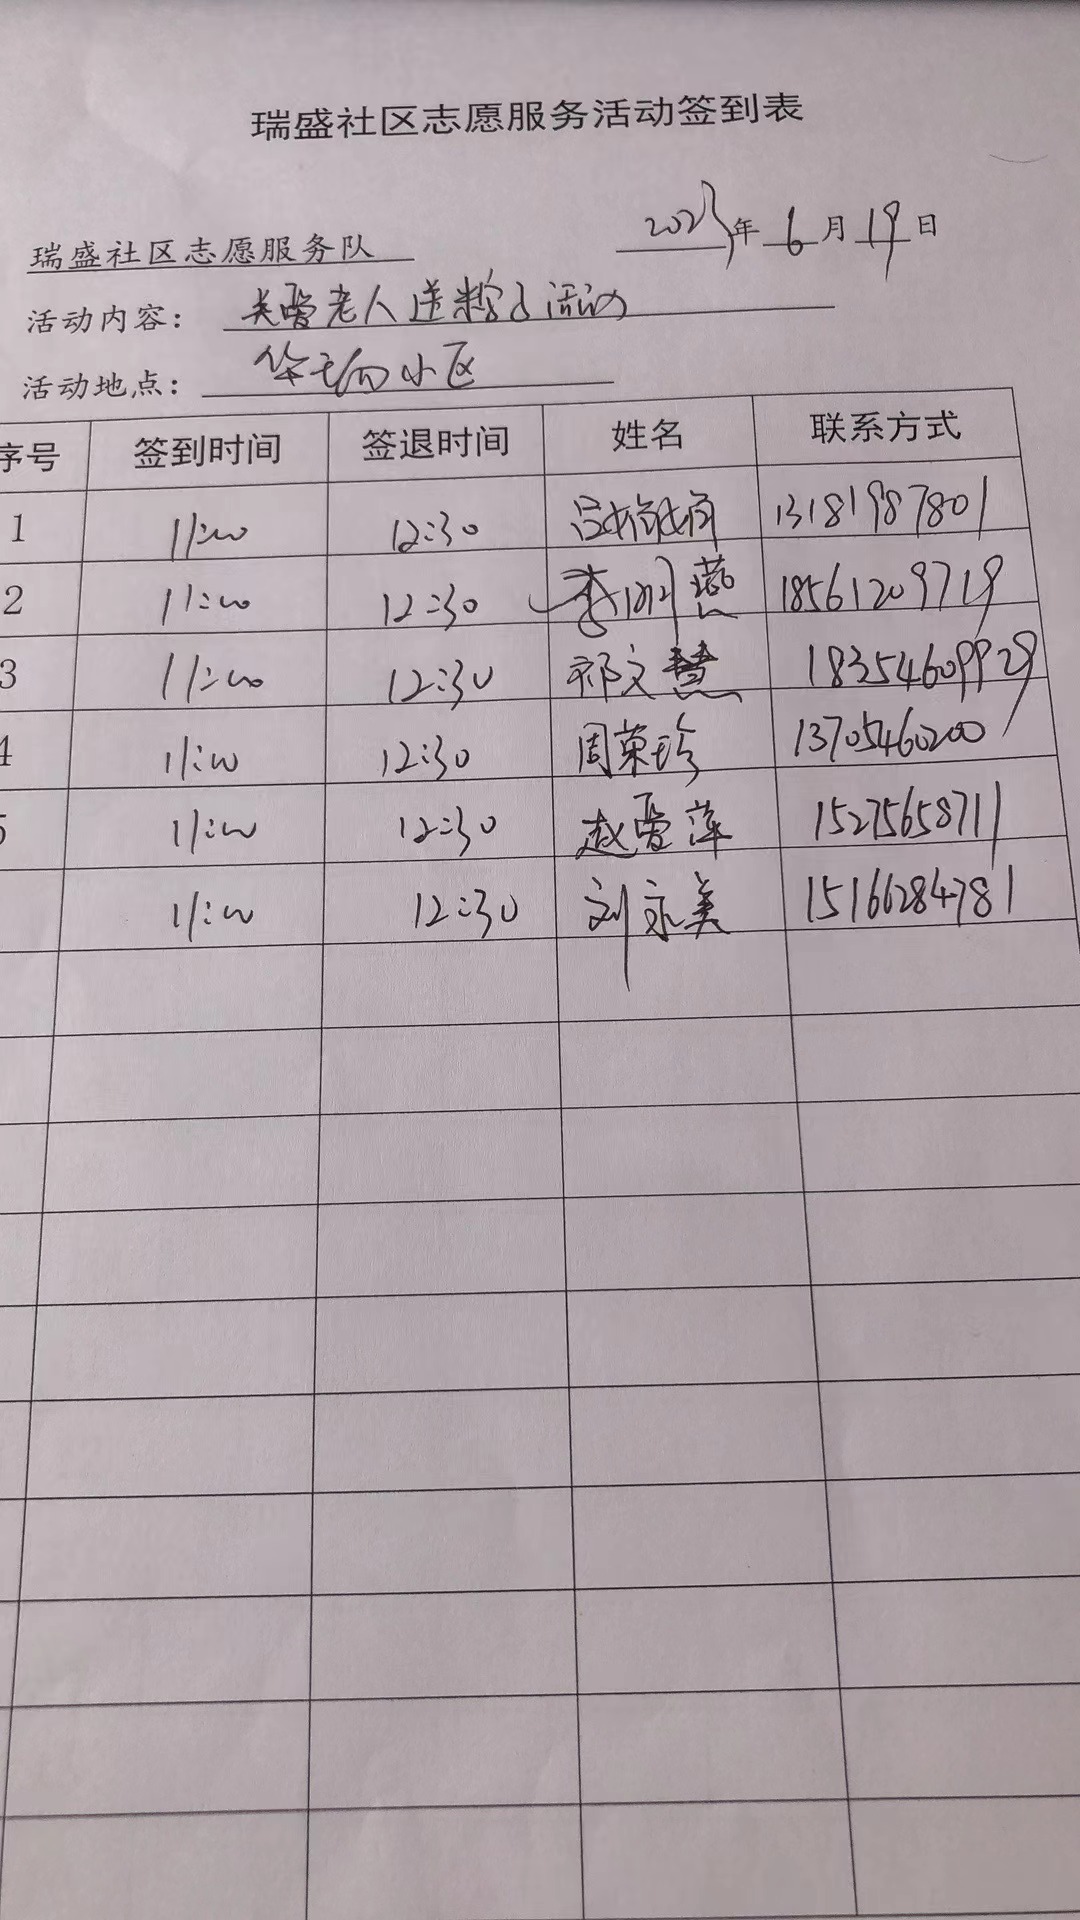 瑞盛社区志愿服务活动签到表
2023年6月19日
瑞盛社区志愿服务队
活动内容：关爱老人送粽子活动
活动地点：小区
序号 签到时间 签退时间 姓名 联系方式
1 11:00 12:30 13181987801
2 11:00 12:30 李 燕 18561209719
3 11:00 12:30 祁文慧 18354609929
4 11:00 12:30 周荣珍 13705460200
5 11:00 12:30 赵爱萍 15275658711
11:00 12:30 刘永美 15166284781